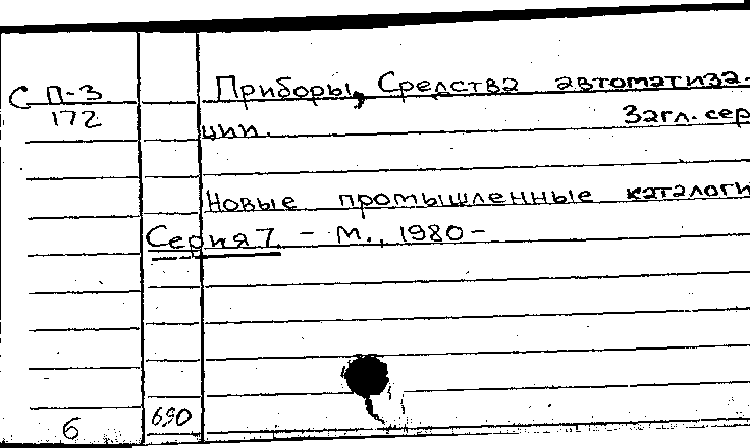 С П-3
172
Приборы, Средства автоматиза-
ции.
Загл. сер
Новые промышленные каталоги
Серия 7 - М., 1980 -
6
690